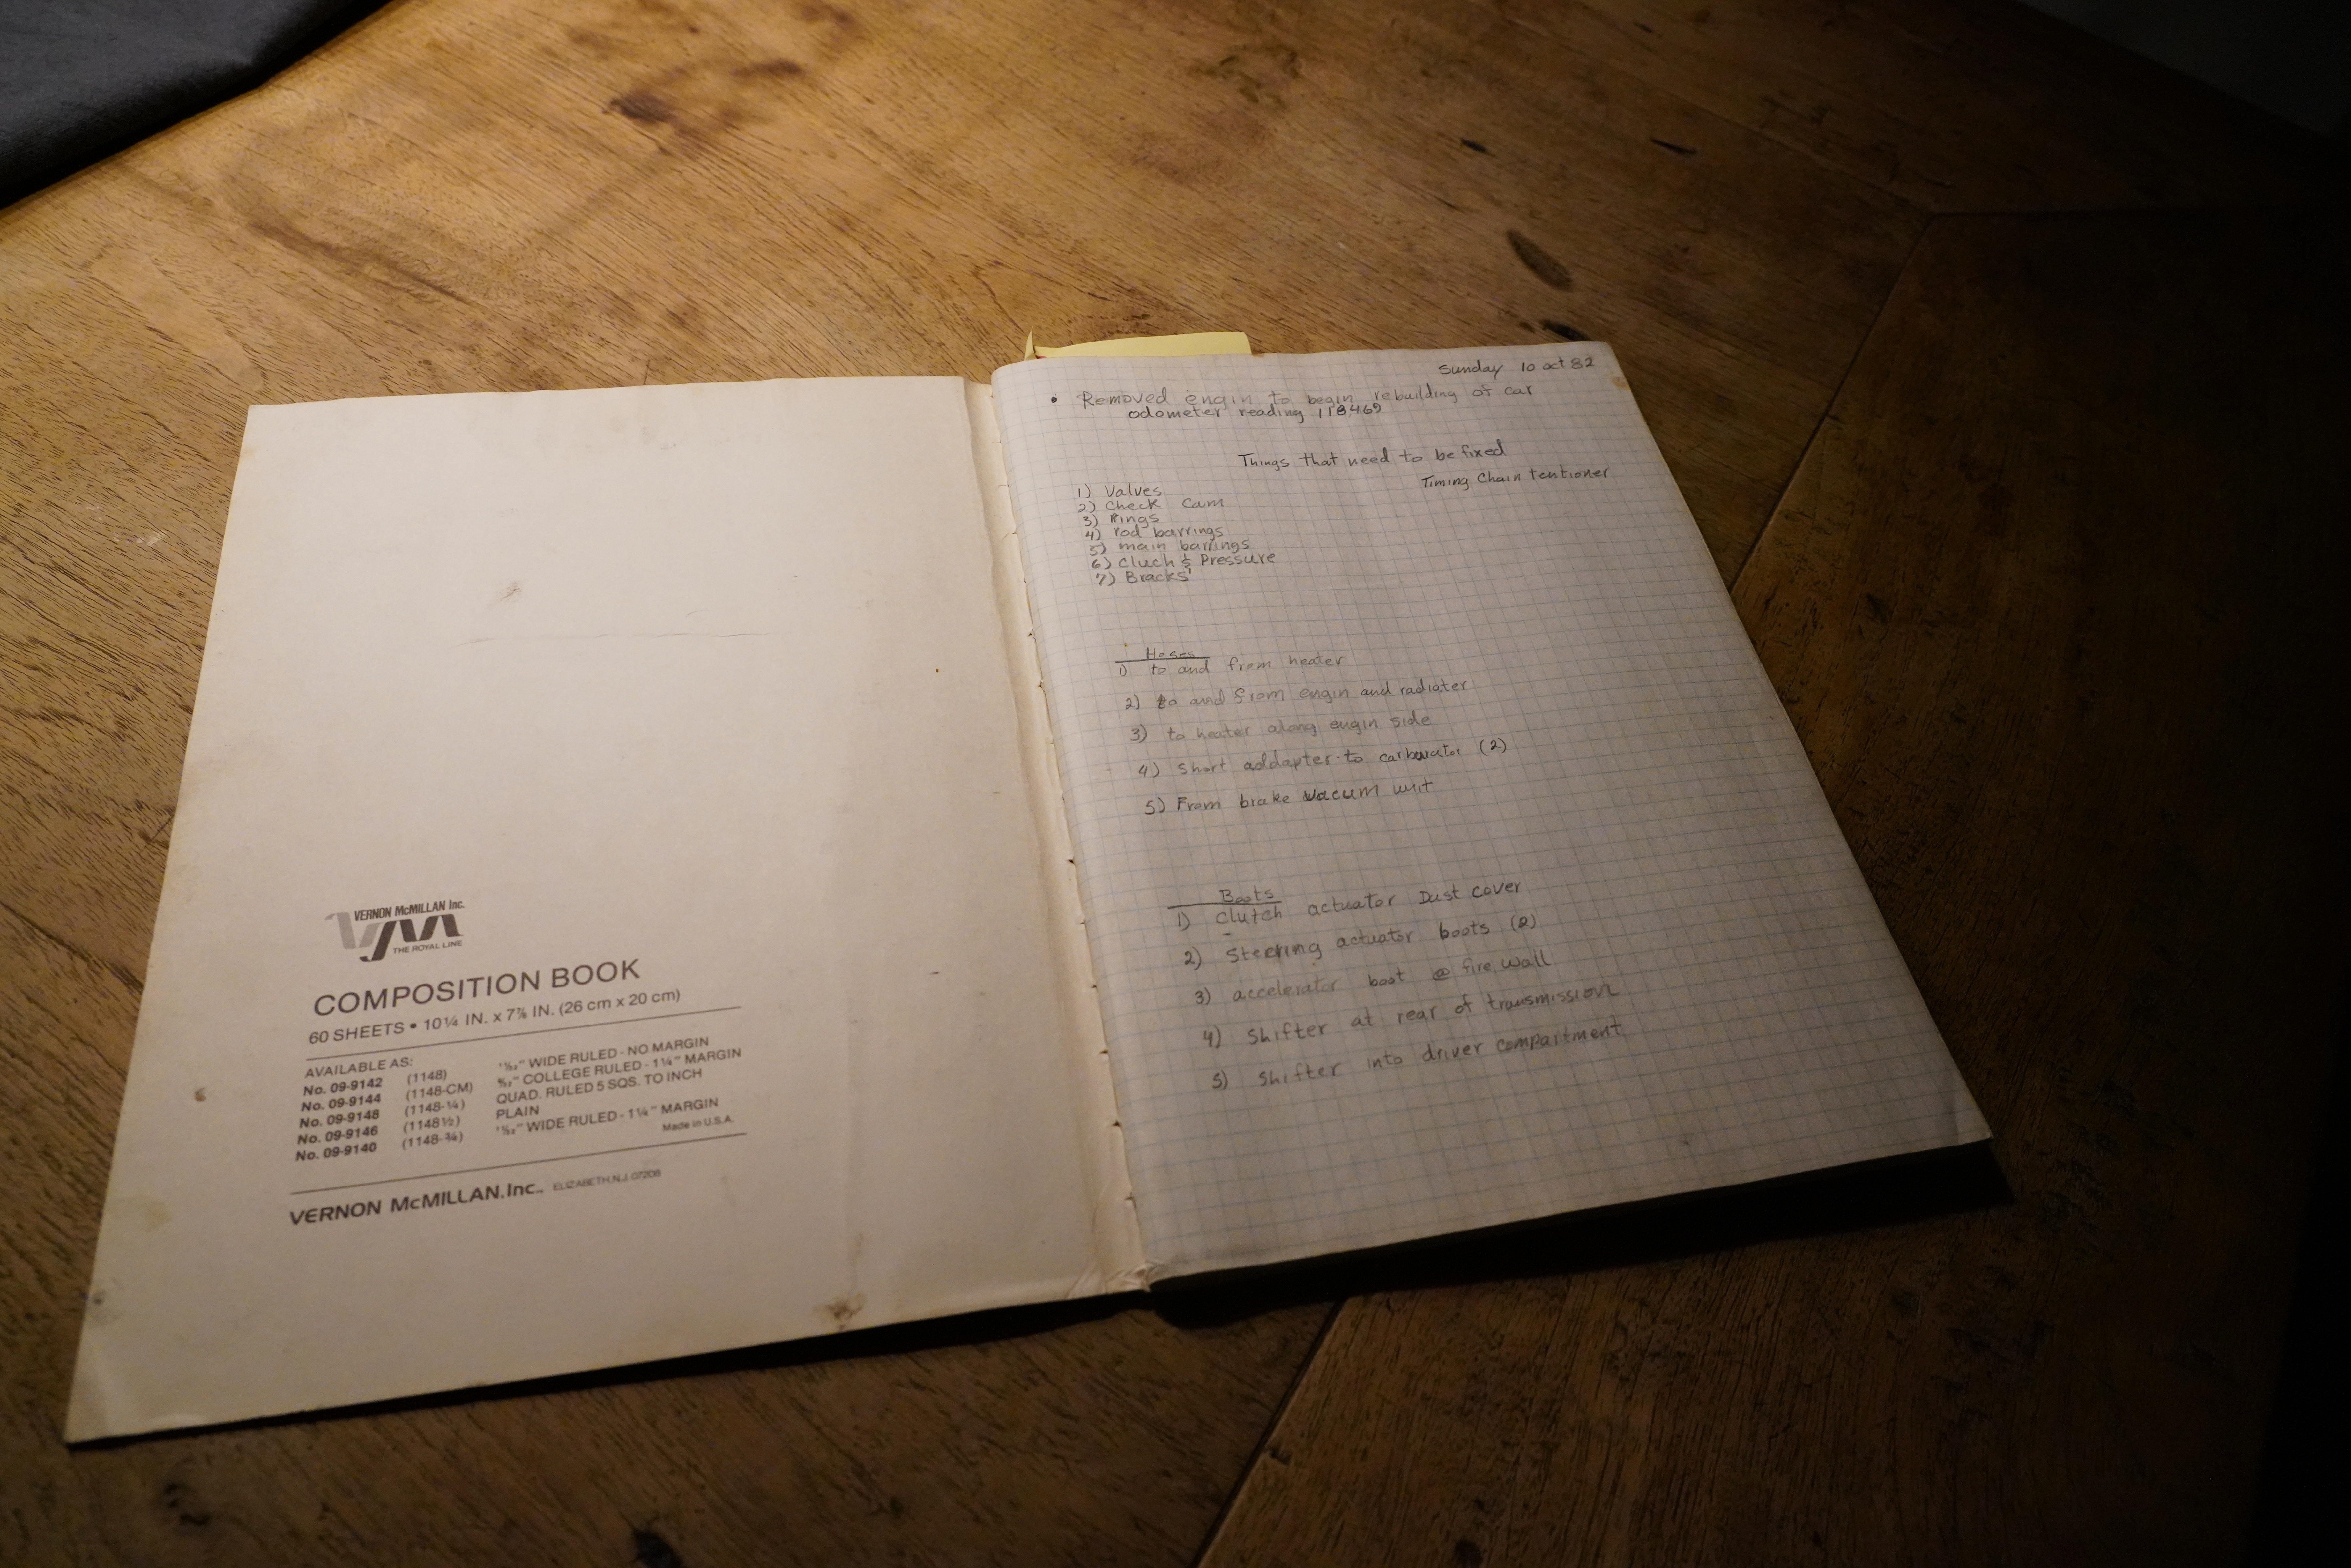 VERNON McMILLAN Inc.
THE ROYAL LINE
COMPOSITION BOOK
60 SHEETS • 10¼ IN. x 7⅞ IN. (26 cm x 20 cm)
AVAILABLE AS:
No. 09-9142 (1148) 11/32" WIDE RULED - NO MARGIN
No. 09-9144 (1148-CM) 9/32" COLLEGE RULED - 1¼" MARGIN
No. 09-9148 (1148-¼) QUAD. RULED 5 SQS. TO INCH
No. 09-9146 (1148½) PLAIN
No. 09-9140 (1148-¾) 11/32" WIDE RULED - 1¼" MARGIN
Made in U.S.A.
VERNON McMILLAN, Inc., ELIZABETH, N.J. 07208
Sunday 10 oct 82
• Removed engin to begin rebuilding of car
odometer reading 118469
Things that need to be fixed
Timing Chain tentioner
1) Valves
2) Check Cam
3) Rings
4) rod barrings
5) main barrings
6) Cluch & Pressure
7) Bracks'
Hoses
1) to and from heater
2) to and from engin and radiater
3) to heater along engin side
4) Short addapter to carburator (2)
5) From brake vacum unit
Boots
1) Clutch actuator Dust cover
2) Steering actuator boots (2)
3) accelerator boot @ fire wall
4) Shifter at rear of transmission
5) Shifter into driver compartment